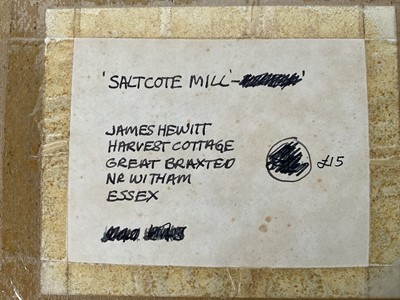 'SALTCOTE MILL'- '
JAMES HEWITT
HARVEST COTTAGE
GREAT BRAXTED £15
NR WITHAM
ESSEX